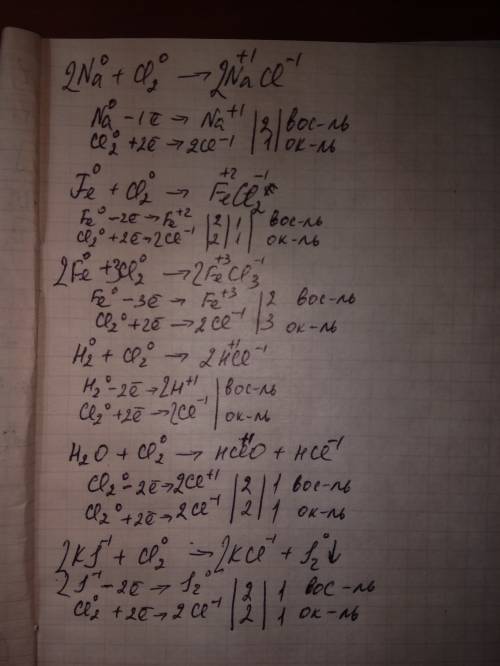 2Na⁰ + Cl₂⁰ → 2Na⁺¹Cl⁻¹
Na⁰ -1e̅ → Na⁺¹ | 2 | вос-ль
Cl₂⁰ +2e̅ → 2Cl⁻¹ | 1 | ок-ль
Fe⁰ + Cl₂⁰ → Fe⁺²Cl₂⁻¹
Fe⁰ -2e̅ → Fe⁺² | 2 | 1 | вос-ль
Cl₂⁰ +2e̅ → 2Cl⁻¹ | 2 | 1 | ок-ль
2Fe⁰ +3Cl₂⁰ → 2Fe⁺³Cl₃⁻¹
Fe⁰ -3e̅ → Fe⁺³ | 2 вос-ль
Cl₂⁰ +2e̅ → 2Cl⁻¹ | 3 ок-ль
H₂⁰ + Cl₂⁰ → 2H⁺¹Cl⁻¹
H₂⁰ -2e̅ → 2H⁺¹ | вос-ль
Cl₂⁰ +2e̅ → 2Cl⁻¹ | ок-ль
H₂O + Cl₂⁰ → HCl⁺¹O + HCl⁻¹
Cl₂⁰ -2e̅ → 2Cl⁺¹ | 2 | 1 вос-ль
Cl₂⁰ +2e̅ → 2Cl⁻¹ | 2 | 1 ок-ль
2KI⁻¹ + Cl₂⁰ → 2KCl⁻¹ + I₂⁰↓
2I⁻¹ -2e̅ → I₂⁰ | 2 | 1 вос-ль
Cl₂⁰ +2e̅ → 2Cl⁻¹ | 2 | 1 ок-ль